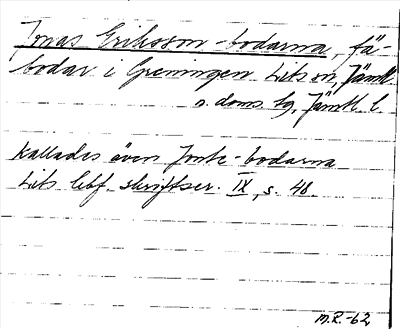 Jonas Eriksson-bodarna, fä-
bodar i Greningen Lits sn, Jämtl.
n. doms. tg, Jämtl. l.
Kallades även Jonke-bodarna
Lits hbf. skriftser. IX, s. 48.
M.R.-62